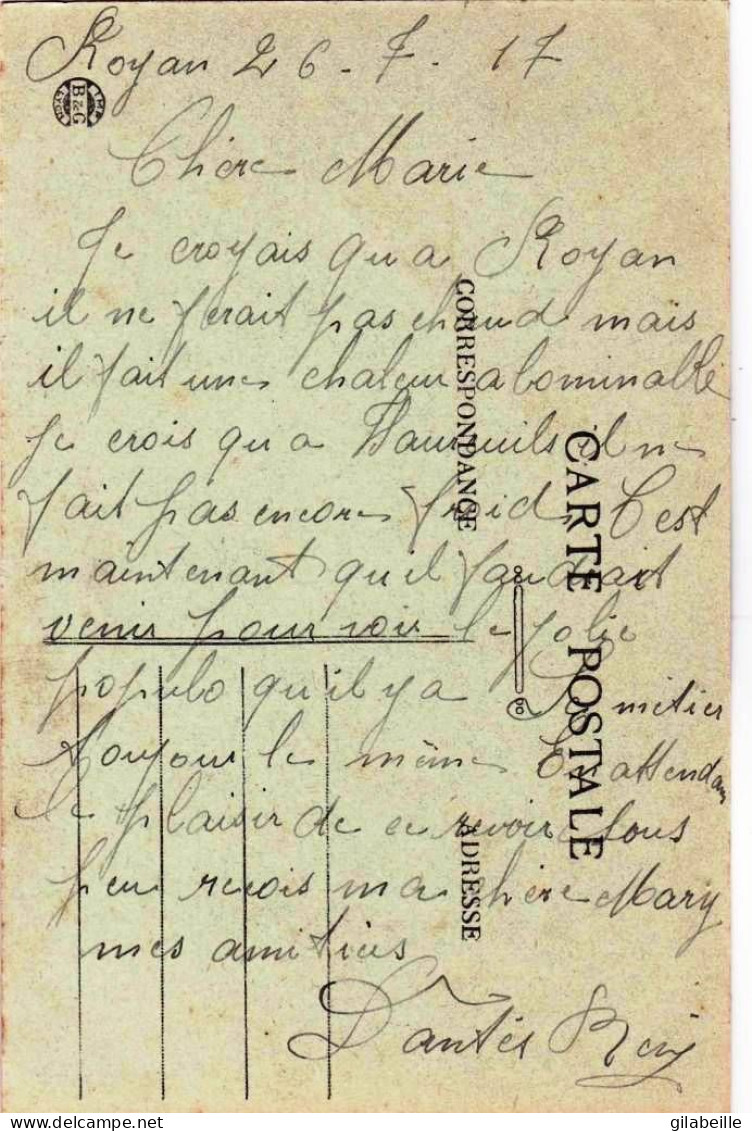 Royan 26-7.17
IMP.
B & G
LYON
Chère Marie
Je croyais qu a Royan
il ne ferait pas chaud mais
il fait une chaleur abominable
je crois qu a il ne
fait pas encore froid, C'est
maintenant qu'il faudrait
venir pour voir le jolie
populo qu'il y a metier
toujour le même En attendan
le plaisir de ce revoir sous
peu recois ma chère Mary
mes amitiés
Dantès
CORRESPONDANCE
CARTE POSTALE
ADRESSE
gilabeille